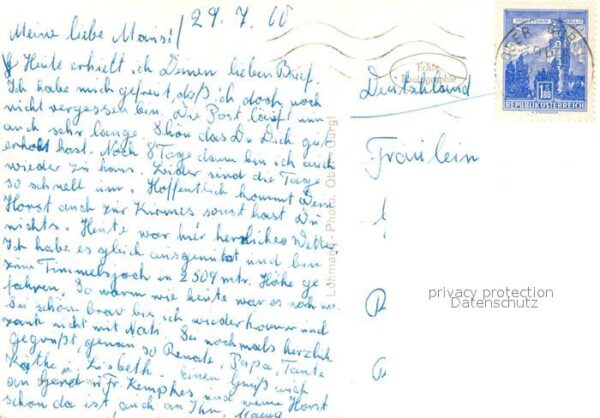 29.7.60
Meine liebe Mausi!
Heute erhielt ich Deinen lieben Brief.
Ich habe mich gefreut, daß ich doch noch
nicht vergessen bin. Die Post läuft nun
auch sehr lange. Schön das Du Dich gut
erholt hast. Noch 8 Tage dann bin ich auch
wieder zu haus. Leider sind die Tage
so schnell um. Hoffentlich kommt Dein
Horst auch zur Kirmes sonst hast Du
nichts. Heute war hier herrliches Wetter
Ich habe es gleich ausgenützt und bin
zum Timmelsjoch in 2509 mtr. Höhe ge
fahren. So warm wie heute war es noch nie.
Sei schön brav bis ich wieder komme und
zanke nicht mit Nati. Sei nochmals herzlich
gegrüßt, genau so Renate, Papa, Tante
Käthe u. Lisbeth. Einen Gruß auch
an Gerd u. Fr. Kempkes, und wenn Horst
schon da ist, auch an Ihn.
Lohmann - Photo: Ober-Gurgl
Echte
Photographie
Deutschland
Fräulein
1.80
REPUBLIK ÖSTERREICH
privacy protection
Datenschutz